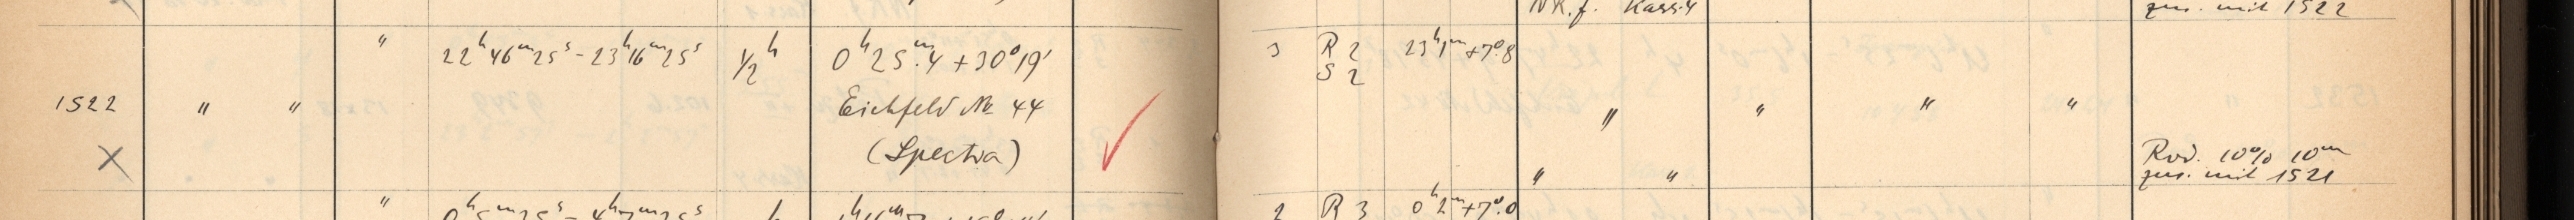 NK.f. Kassi4 zus. mit 1522
" 22ʰ46ᵐ25ˢ-23ʰ16ᵐ25ˢ ½ʰ 0ʰ25ᵐ.4 +30°19' 3 R 2 23ʰ1ᵐ+7°.8
S 2
1522 " " Eichfeld № 44 " " " "
(Spectra) Rod. 10% 10ᵐ
" " zus. mit 1521
" 2 R 3 0ʰ2ᵐ+7°.0